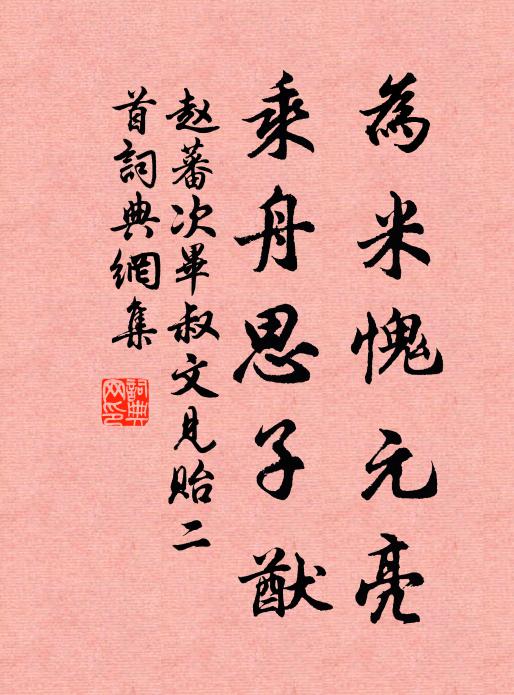 為米愧元亮
乘舟思子猷
赵蕃次畢叔文見貽二
首詞典網集
詞典
网印